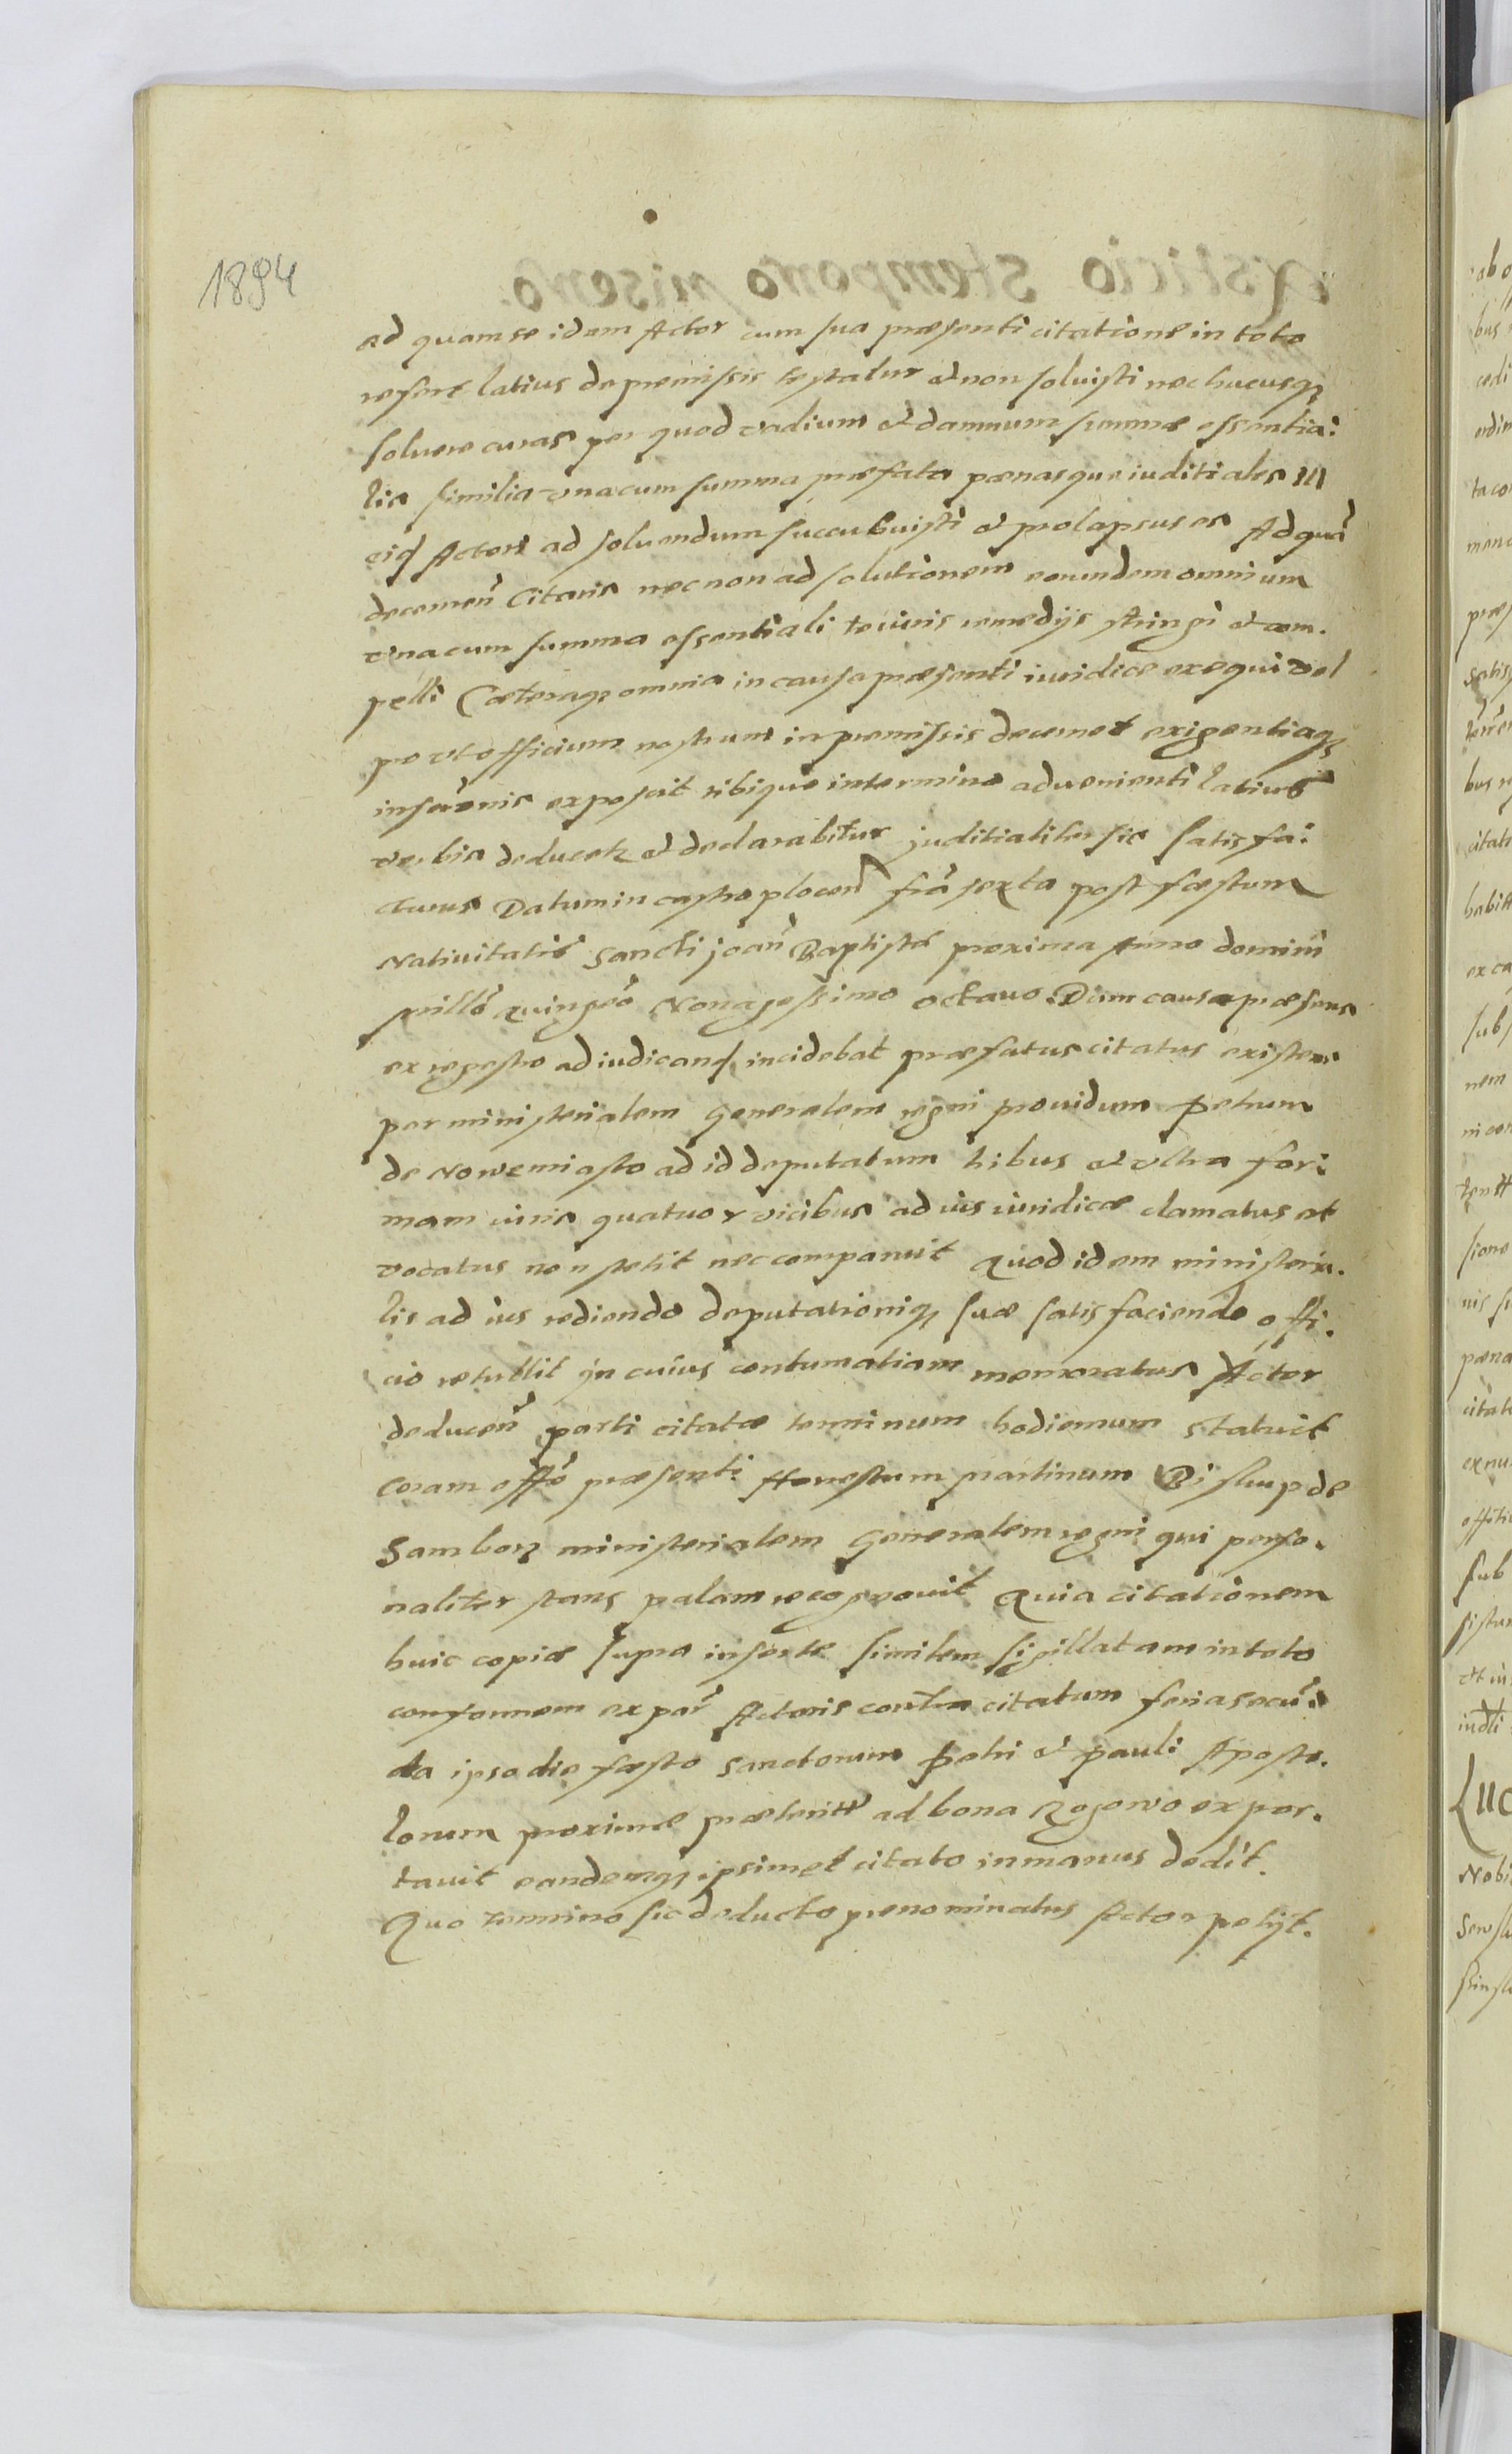 1894
ad quam se idem Actor cum sua præsenti citatione in toto
refert latius de premissis testatur et non soluisti nec hucusq
soluere curas per quod vadium et damnum summæ essentia:
lis similia vnacum summa præfata pænasque iuditiales III
eiq Actori ad soluendum succubuisti et prolapsus es Ad quā
decernen̄ Citaris nec non ad solutionem eorundem omnium
vnacum summa essentiali te iuris remedijs stringi et com.
pelli Cæteraq omnia in causa præsenti iuridice exequi vel
pro vt officium nostrum in premissis decernet exigentiaq
iuris exposcit tibique in termino aduenienti latius
verbis deducetr et declarabitur juditialiter sis satisfa:
cturus Datum in castro plocen̄ fr̄a sexta post fæstum
Natiuitatis Sancti joan̄ Baptistæ proxima Anno domini
millō Quingēō Nonagessimo octauo. Dum causa præsens
ex regestro ad iudicand incidebat præfatus citatus existens
per ministerialem Generalem regni prouidum petrum
de Nowemiasto ad id deputatum tribus et vltra for:
mam iuris quatuor vicibus ad ius iuridicæ clamatus et
vocatus non stetit nec comparuit Quod idem ministeria.
lis ad ius rediendo deputationiq suæ satis faciendo offi.
cio retullit jn cuius contumatiam memoratus Actor
deducen̄ parti citatæ terminum hodiernum statuit
Coram offō præsenti Honestum martinum Biskup de
Samborz ministerialem Generalem regni qui perso.
naliter stans palam recognouit Quia citationem
huic copiæ supra inserte similem sigillatam in toto
conformem ex par̄ Actoris contra citatum feria secū:
da ipso die fæsto Sanctorum Petri et pauli Aposto.
lorum proxime præteritt ad bona Rogowo expor.
tauit eandemq ipsimet citato in manus dedit.
Quo termino sic deducto prenominatus Actor petijt.